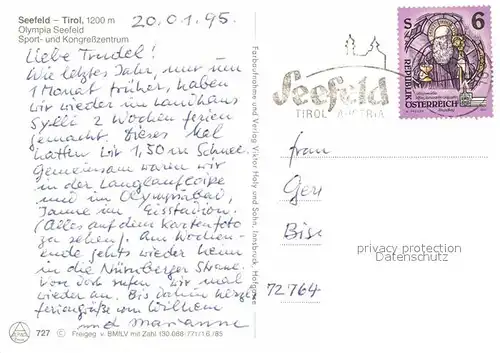 Seefeld – Tirol, 1200 m
Olympia Seefeld
Sport- und Kongreßzentrum
20.01.95.
Liebe Trudel!
Wie letztes Jahr, nur um
1 Monat früher, haben
wir wieder im Landhaus
Sylli 2 Wochen ferien
gemacht. Dieses Mal
hatten wir 1,50 m Schnee.
Gemeinsam waren wir
in der Langlaufloipe
und im Olympiabad,
Janne im Eisstadion.
(Alles auf dem Kartenfoto
zu sehen). Am Wochen-
ende gehts wieder heim
in die Nürnberger Strasse.
Von dort rufen wir mal
wieder an. Bis dahin herzl.
feriengrüße vom Wilhelm
und Marianne
727 © Freigeg. v. BMfLV mit Zahl 130.088/771/1.6/85
Farbaufnahme und Verlag Viktor Holy und Sohn, Innsbruck, Hofgasse
Seefeld
TIROL AUSTRIA
S 6
REPUBLIK
ÖSTERREICH
frau
Geri
Bise
72764
privacy protection
Datenschutz